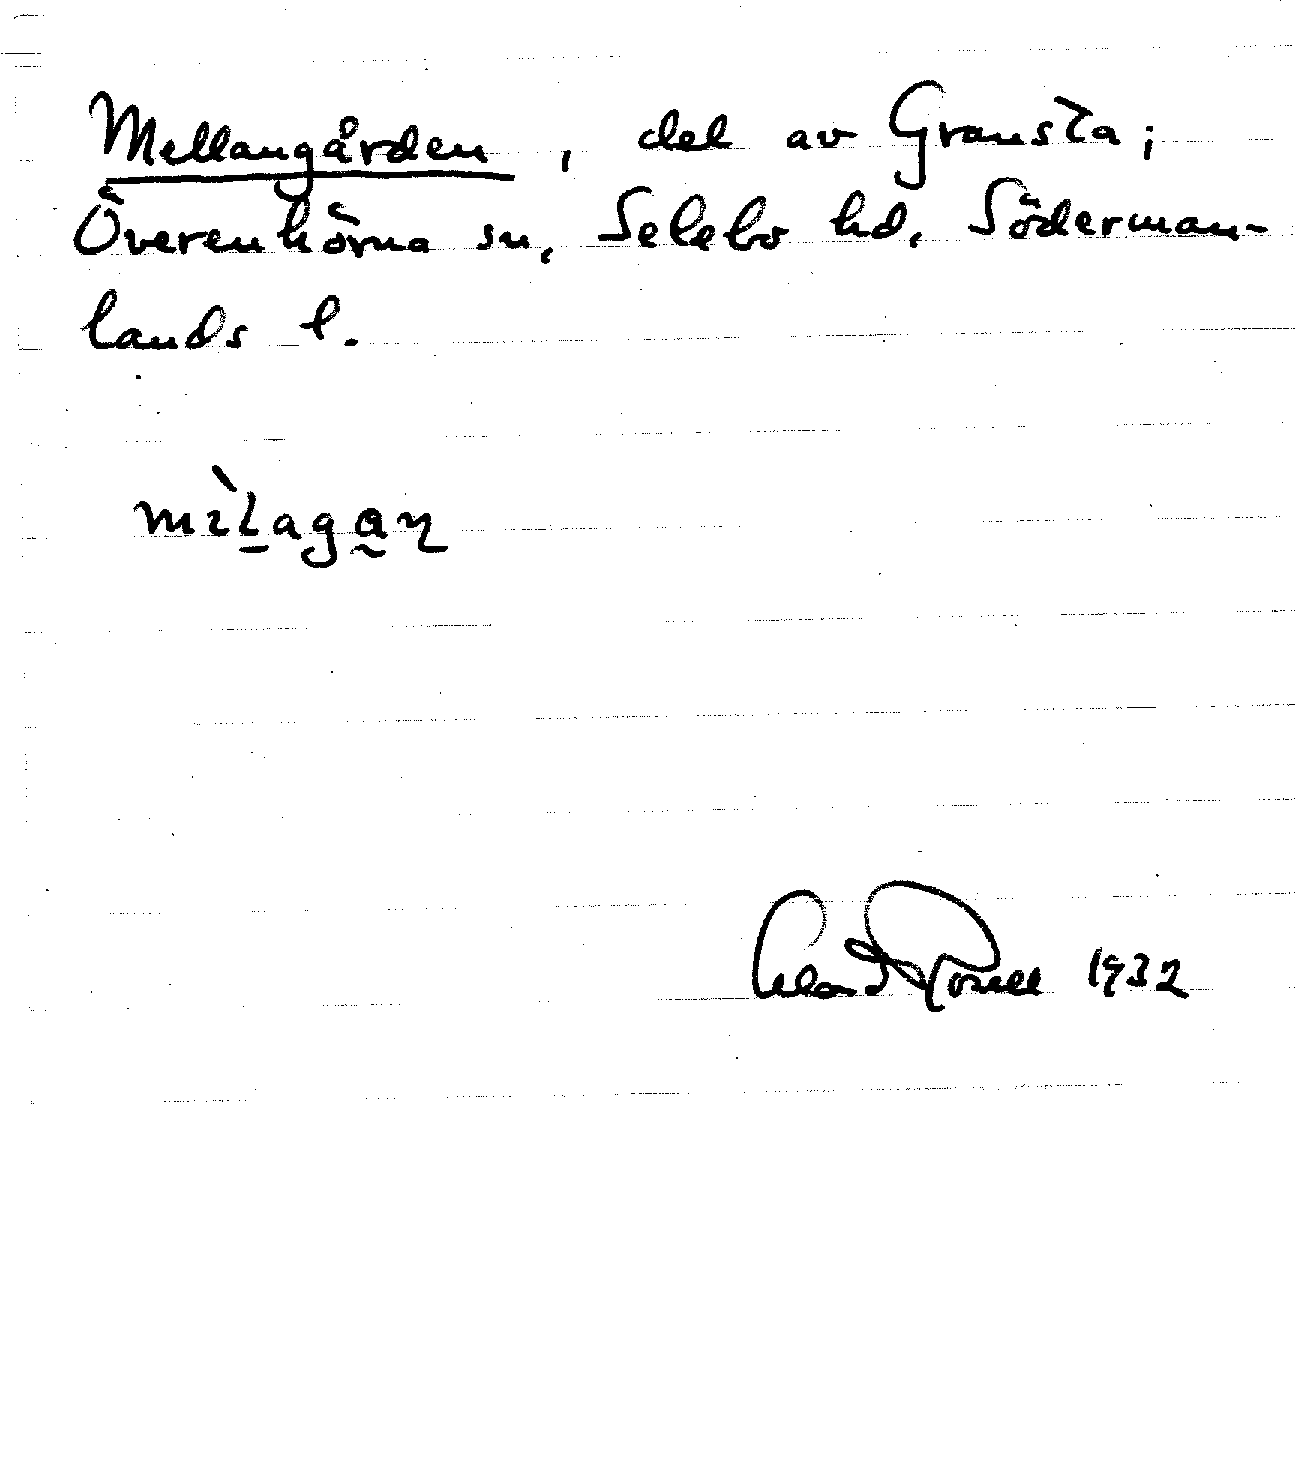 Mellangården, del av Gransta;
Överenhörna sn, Selebo hd, Söderman-
lands l.
mɪ̀l̠aga̰ɳ
1932